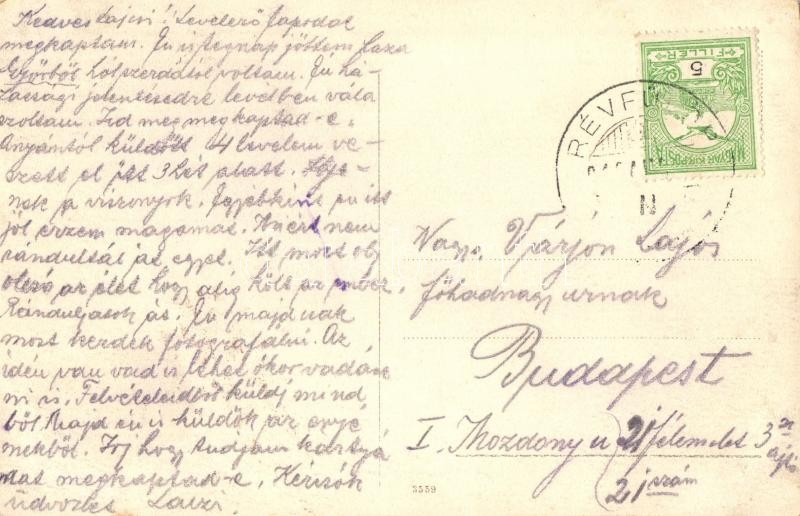 Kedves Lajcsi! Levelező lapodat
megkaptam. Én is tegnap jöttem haza
Győrből hol szerdától voltam. Én há-
zassági jelentésedre levélben vála
szoltam. Írd meg megkaptad-e.
Anyántól küldött 4 levelem ve-
szett el itt 3 hét alatt.
nak a viszonyok. Egyébként én itt
jól érzem magamat. Miért nem
rándultál át egyet. Itt most oly
olcsó az élet hogy alig költ az
Ránduljatok át. Én majd csak
most kezdek fotografálni. Az
idén van vad is lehet ókor vadász
ni is. Felvételeidből küldj mind
ből. Majd én is küldök az enyé
mekből. Írj hogy tudjam kártyá
mat megkaptad-e. Kézcsók
üdvözlet Laczi
FILLÉR
5
MAGYAR KIR. POSTA
RÉVF
Nagys. Várjon Lajos
főhadnagy urnak
Budapest
I. Mozdony u 21 félemelet 3
ajtó
21 szám
3559